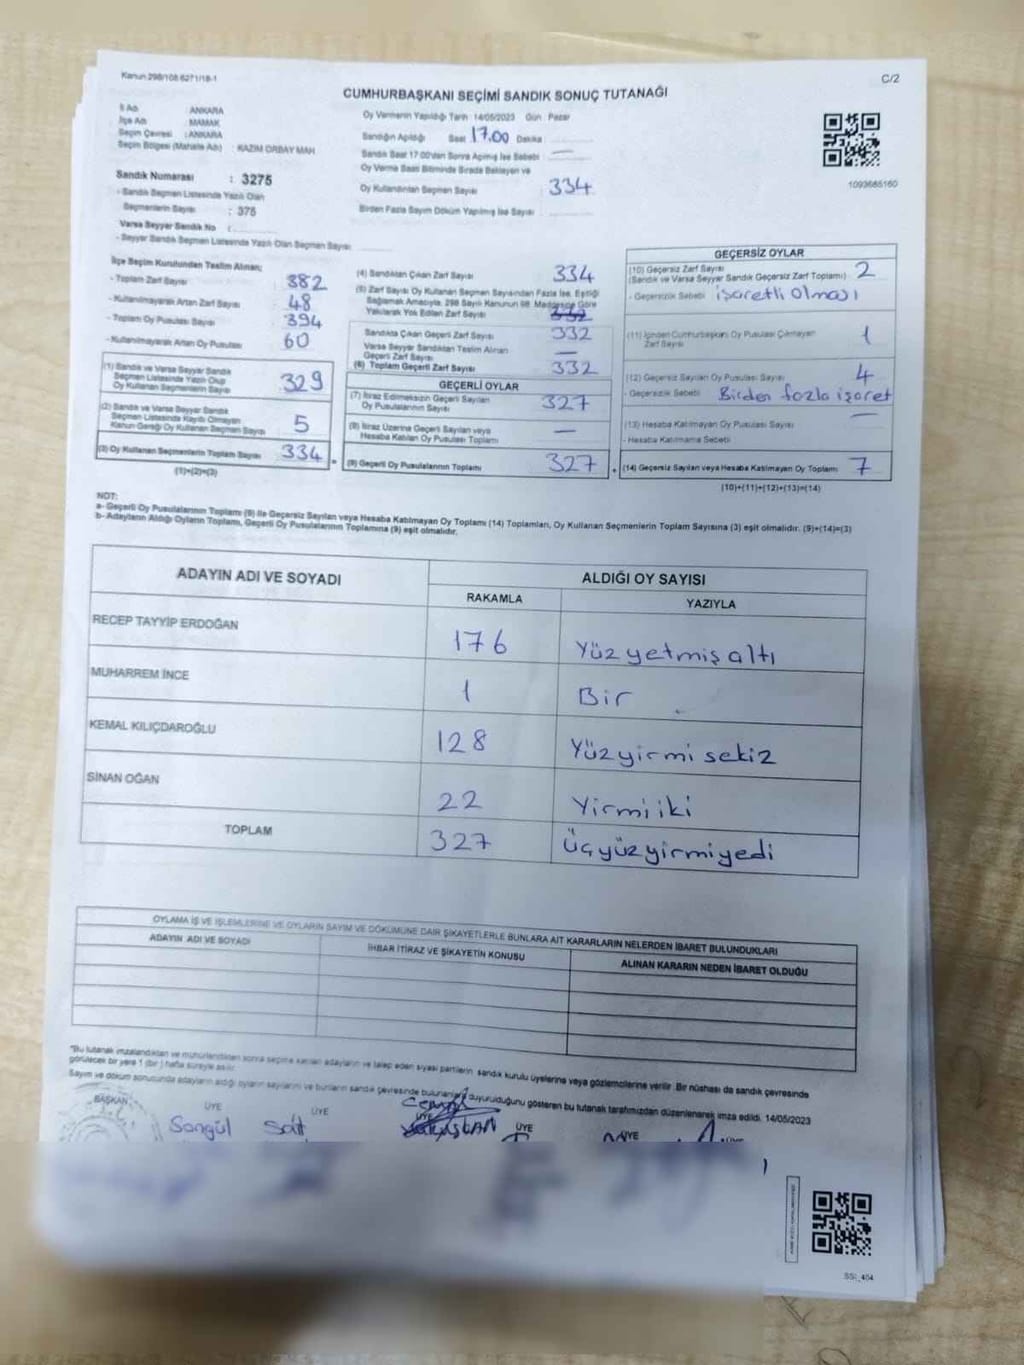 Kanun 298/108 6271/18-1
C/2
CUMHURBAŞKANI SEÇİMİ SANDIK SONUÇ TUTANAĞI
İl Adı : ANKARA
İlçe Adı : MAMAK
Seçim Çevresi : ANKARA
Seçim Bölgesi (Mahalle Adı) : KAZIM ORBAY MAH
Sandık Numarası : 3275
- Sandık Seçmen Listesinde Yazılı Olan
Seçmenlerin Sayısı : 375
Varsa Seyyar Sandık No :
- Seyyar Sandık Seçmen Listesinde Yazılı Olan Seçmen Sayısı
Oy Vermenin Yapıldığı Tarih 14/05/2023 Gün : Pazar
Sandığın Açıldığı Saat 17.00 Dakika : —
Sandık Saat 17.00'dan Sonra Açılmış İse Sebebi : —
Oy Verme Saati Bitiminde Sırada Bekleyen ve
Oy Kullandırılan Seçmen Sayısı 334
Birden Fazla Sayım Döküm Yapılmış İse Sayısı
1093685160
İlçe Seçim Kurulundan Teslim Alınan;
- Toplam Zarf Sayısı 382
- Kullanılmayarak Artan Zarf Sayısı 48
- Toplam Oy Pusulası Sayısı 394
- Kullanılmayarak Artan Oy Pusulası 60
(1) Sandık ve Varsa Seyyar Sandık
Seçmen Listesinde Yazılı Olup
Oy Kullanan Seçmenlerin Sayısı 329
(2) Sandık ve Varsa Seyyar Sandık
Seçmen Listesinde Kayıtlı Olmayan
Kanun Gereği Oy Kullanan Seçmen Sayısı 5
(3) Oy Kullanan Seçmenlerin Toplam Sayısı 334
(1)+(2)=(3)
(4) Sandıktan Çıkan Zarf Sayısı 334
(5) Zarf Sayısı Oy Kullanan Seçmen Sayısından Fazla İse, Eşitliği
Sağlamak Amacıyla, 298 Sayılı Kanunun 98. Maddesine Göre
Yakılarak Yok Edilen Zarf Sayısı
Sandıkta Çıkan Geçerli Zarf Sayısı 332
Varsa Seyyar Sandıktan Teslim Alınan
Geçerli Zarf Sayısı —
(6) Toplam Geçerli Zarf Sayısı 332
GEÇERLİ OYLAR
(7) İtiraz Edilmeksizin Geçerli Sayılan
Oy Pusulalarının Sayısı 327
(8) İtiraz Üzerine Geçerli Sayılan veya
Hesaba Katılan Oy Pusulası Toplamı —
(9) Geçerli Oy Pusulalarının Toplamı 327
GEÇERSİZ OYLAR
(10) Geçersiz Zarf Sayısı
(Sandık ve Varsa Seyyar Sandık Geçersiz Zarf Toplamı) 2
- Geçersizlik Sebebi işaretli olması
(11) İçinden Cumhurbaşkanı Oy Pusulası Çıkmayan
Zarf Sayısı 1
(12) Geçersiz Sayılan Oy Pusulası Sayısı 4
- Geçersizlik Sebebi Birden fazla işaret
(13) Hesaba Katılmayan Oy Pusulası Sayısı —
- Hesaba Katılmama Sebebi
(14) Geçersiz Sayılan veya Hesaba Katılmayan Oy Toplamı 7
(10)+(11)+(12)+(13)=(14)
NOT:
a- Geçerli Oy Pusulalarının Toplamı (9) ile Geçersiz Sayılan veya Hesaba Katılmayan Oy Toplamı (14) Toplamları, Oy Kullanan Seçmenlerin Toplam Sayısına (3) eşit olmalıdır. (9)+(14)=(3)
b- Adayların Aldığı Oyların Toplamı, Geçerli Oy Pusulalarının Toplamına (9) eşit olmalıdır.
ADAYIN ADI VE SOYADI ALDIĞI OY SAYISI
RAKAMLA YAZIYLA
RECEP TAYYİP ERDOĞAN 176 Yüz yetmiş altı
MUHARREM İNCE 1 Bir
KEMAL KILIÇDAROĞLU 128 Yüz yirmi sekiz
SİNAN OĞAN 22 Yirmi iki
TOPLAM 327 Üçyüz yirmi yedi
OYLAMA İŞ VE İŞLEMLERİNE VE OYLARIN SAYIM VE DÖKÜMÜNE DAİR ŞİKAYETLERLE BUNLARA AİT KARARLARIN NELERDEN İBARET BULUNDUKLARI
ADAYIN ADI VE SOYADI İHBAR İTİRAZ VE ŞİKAYETİN KONUSU ALINAN KARARIN NEDEN İBARET OLDUĞU
*Bu tutanak imzalandıktan ve mühürlendikten sonra seçime katılan adayların ve talep eden siyasi partilerin sandık kurulu üyelerine veya gözlemcilerine verilir. Bir nüshası da sandık çevresinde
görülecek bir yere 1 (bir) hafta süreyle asılır.
Sayım ve döküm sonucunda adayların aldığı oyların sayılarını ve bunların sandık çevresinde bulunanlara duyurulduğunu gösteren bu tutanak tarafımızdan düzenlenerek imza edildi. 14/05/2023
BAŞKAN ÜYE ÜYE ÜYE ÜYE ÜYE ÜYE
Songül Sait
SSİ_404